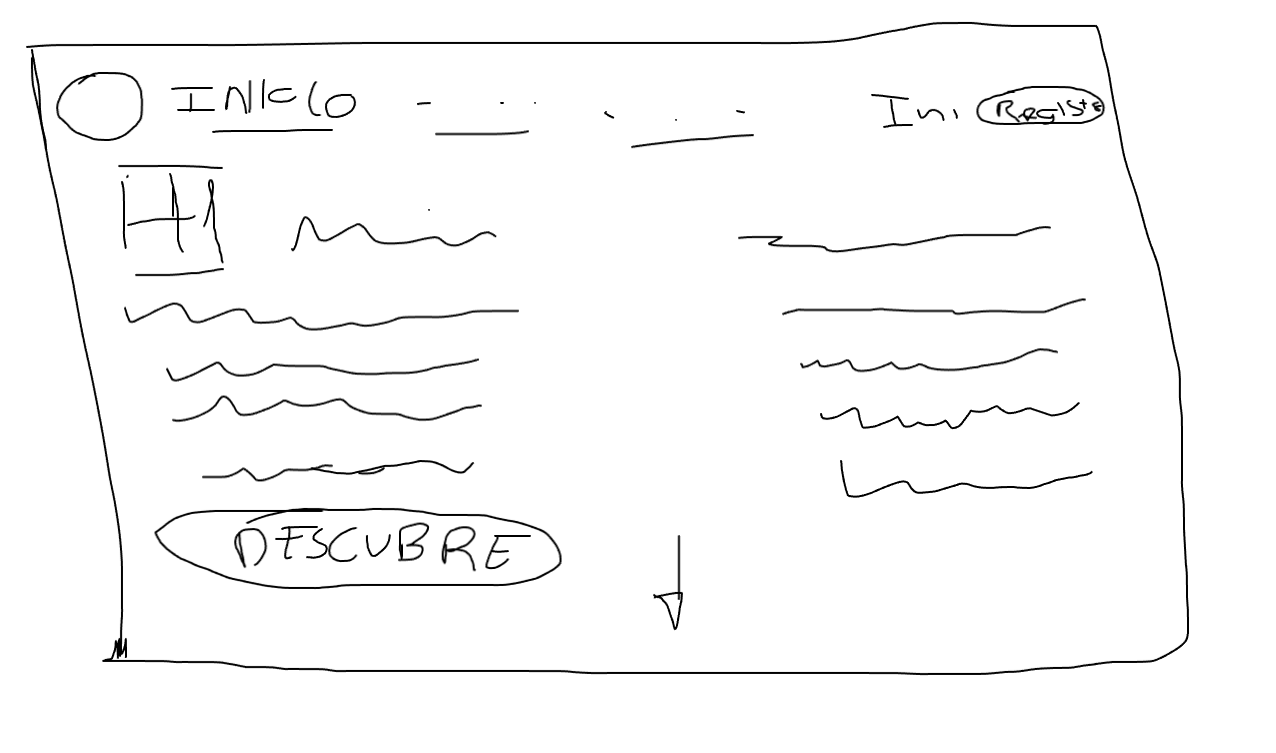 INICIO Ini Registe
H1
DESCUBRE